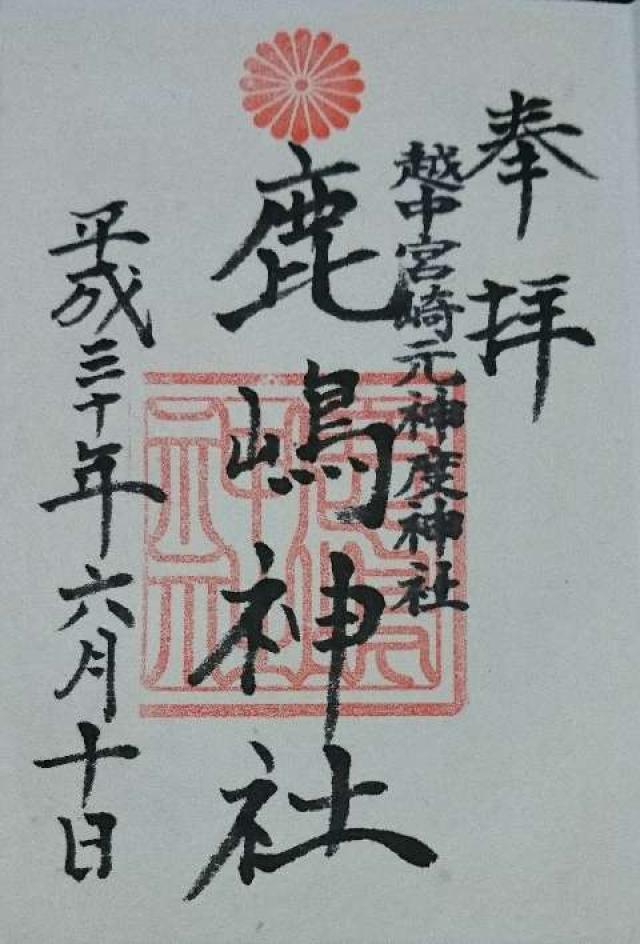 奉拝
越中宮崎元神度神社
鹿嶋神社
平成三十年六月十日